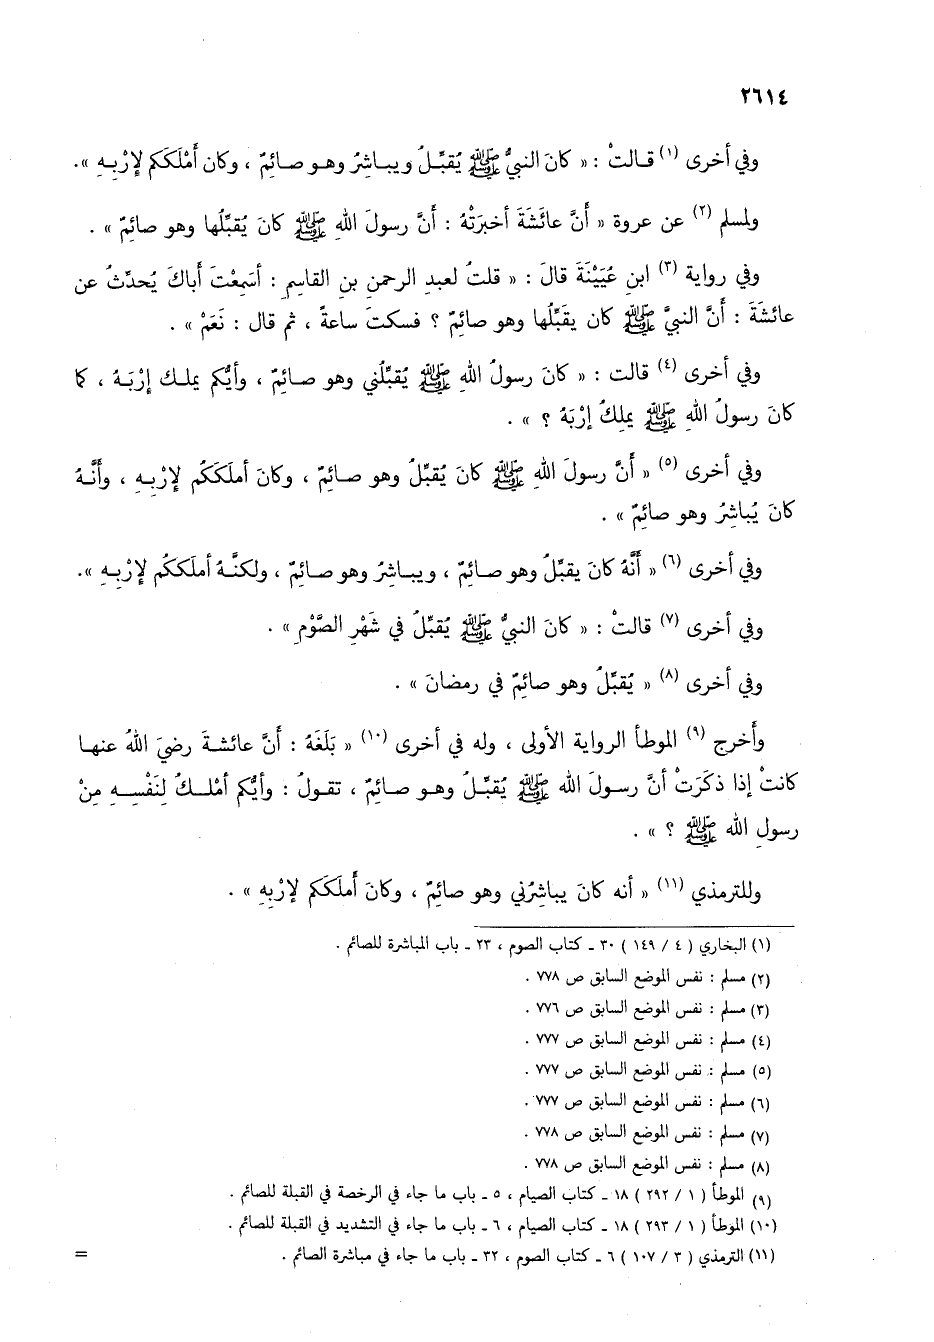 ٢٦١٤
وفي أخرى (١) قالتْ : « كانَ النبيُّ ﷺ يُقبِّلُ ويباشِرُ وهو صائِمٌ ، وكان أَمْلَكَكم لإرْبِهِ ».
ولمسلم (٢) عن عروة « أنَّ عائشَةَ أخبرَتْهُ : أنَّ رسولَ اللهِ ﷺ كانَ يُقبِّلُها وهو صائِمٌ » .
وفي رواية (٣) ابنِ عُيَيْنَةَ قالَ : « قلتُ لعبدِ الرحمنِ بنِ القاسِمِ : أسَمِعْتَ أَباكَ يُحدِّثُ عن
عائشَةَ : أنَّ النبيَّ ﷺ كان يقَبِّلُها وهو صائِمٌ ؟ فسكتَ ساعةً ، ثم قال : نَعَمْ » .
وفي أخرى (٤) قالت : « كانَ رسولُ اللهِ ﷺ يُقبِّلُني وهو صائِمٌ ، وأيُّكم يملك إرْبَهُ ، كما
كانَ رسولُ اللهِ ﷺ يملِكُ إرْبَهُ ؟ » .
وفي أخرى (٥) « أنَّ رسولَ اللهِ ﷺ كانَ يُقبِّلُ وهو صائِمٌ ، وكانَ أملَكَكُم لإرْبِهِ ، وأنَّهُ
كانَ يُباشِرُ وهو صائِمٌ » .
وفي أخرى (٦) « أنَّهُ كانَ يقبِّلُ وهو صائِمٌ ، ويباشِرُ وهو صائِمٌ ، ولكنَّهُ أملَككُم لإرْبِهِ ».
وفي أخرى (٧) قالتْ : « كانَ النبيُّ ﷺ يُقبِّلُ في شَهْرِ الصَّوْمِ » .
وفي أخرى (٨) « يُقبِّلُ وهو صائِمٌ في رمضانَ » .
وأَخرج (٩) الموطأ الرواية الأولى ، وله في أخرى (١٠) « بَلَغَهُ : أنَّ عائشةَ رضيَ اللهُ عنها
كانتْ إذا ذكَرَتْ أنَّ رسولَ الله ﷺ يُقبِّلُ وهو صائِمٌ ، تقولُ : وأيُّكم أمْلكُ لِنَفْسِهِ مِنْ
رسولِ الله ﷺ ؟ » .
وللترمذي (١١) « أنه كانَ يباشِرُني وهو صائِمٌ ، وكانَ أَملَكَكم لإرْبِهِ » .
(١) البخاري ( ٤ / ١٤٩ ) ٣٠ ـ كتاب الصوم ، ٢٣ ـ باب المباشرة للصائم .
(٢) مسلم : نفس الموضع السابق ص ٧٧٨ .
(٣) مسلم : نفس الموضع السابق ص ٧٧٦ .
(٤) مسلم : نفس الموضع السابق ص ٧٧٧ .
(٥) مسلم : نفس الموضع السابق ص ٧٧٧ .
(٦) مسلم : نفس الموضع السابق ص ٧٧٧ .
(٧) مسلم : نفس الموضع السابق ص ٧٧٨ .
(٨) مسلم : نفس الموضع السابق ص ٧٧٨ .
(٩) الموطأ ( ١ / ٢٩٢ ) ١٨ ـ كتاب الصيام ، ٥ ـ باب ما جاء في الرخصة في القبلة للصائم .
(١٠) الموطأ ( ١ / ٢٩٣ ) ١٨ ـ كتاب الصيام ، ٦ ـ باب ما جاء في التشديد في القبلة للصائم .
(١١) الترمذي ( ٣ / ١٠٧ ) ٦ ـ كتاب الصوم ، ٣٢ ـ باب ما جاء في مباشرة الصائم . =